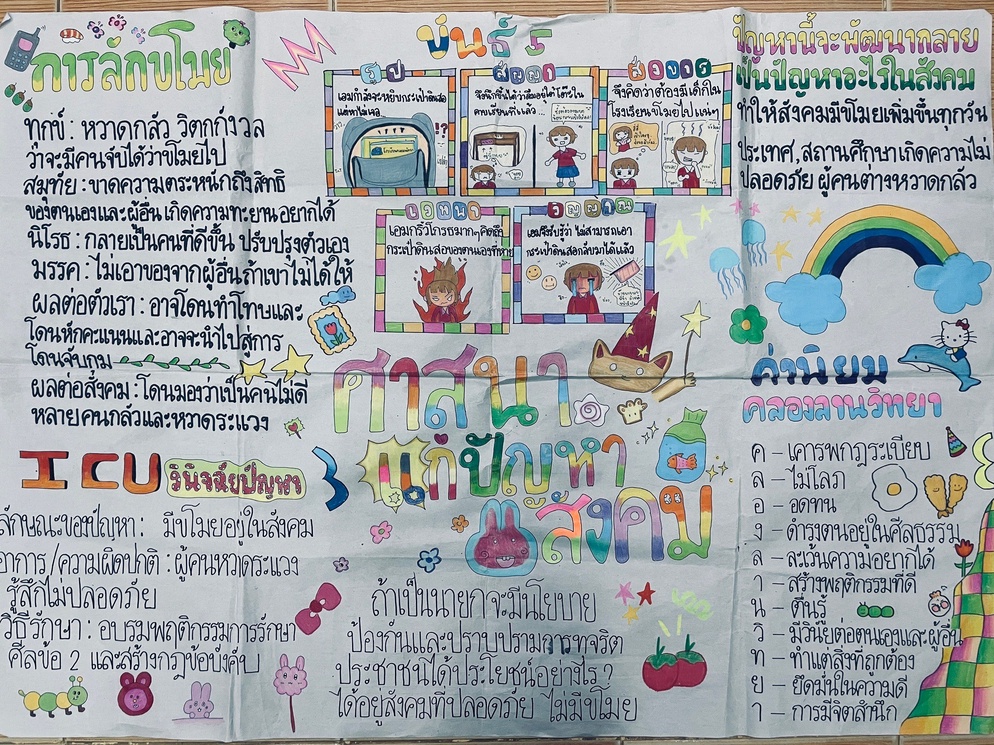 การลักขโมย
ทุกข์ : หวาดกลัว วิตกกังวล
ว่าจะมีคนจับได้ว่าขโมยไป
สมุทัย : ขาดความตระหนักถึงสิทธิ
ของตนเองและผู้อื่น เกิดความทะยานอยากได้
นิโรธ : กลายเป็นคนที่ดีขึ้น ปรับปรุงตัวเอง
มรรค : ไม่เอาของจากผู้อื่นถ้าเขาไม่ได้ให้
ผลต่อตัวเรา : อาจโดนทำโทษและ
โดนหักคะแนนและอาจจะนำไปสู่การ
โดนจับกุม
ผลต่อสังคม : โดนมองว่าเป็นคนไม่ดี
หลายคนกลัวและหวาดระแวง
ICU วินิจฉัยปัญหา
ลักษณะของปัญหา : มีขโมยอยู่ในสังคม
อาการ /ความผิดปกติ : ผู้คนหวาดระแวง
รู้สึกไม่ปลอดภัย
วิธีรักษา : อบรมพฤติกรรมการรักษา
ศีลข้อ 2 และสร้างกฎข้อบังคับ
ขันธ์ 5
รูป
เอมกำลังจะหยิบกระเป๋าดินสอ
แต่หาไม่เจอ
!?
สัญญา
จึงนึกขึ้นได้ว่าลืมอยู่ใต้โต๊ะใน
คาบเรียนที่แล้ว
สังขาร
จึงคิดว่าต้องมีเด็กใน
โรงเรียนขโมยไปแน่ๆ
เวทนา
เอมโกรธมากๆคิดถึง
กระเป๋าดินสอของตนเองที่หาย
วิญญาณ
เอมจึงรับรู้ว่า ไม่สามารถเอา
กระเป๋าดินสอกลับมาได้แล้ว
ศาสนา
แก้ปัญหา
สังคม
ถ้าเป็นนายกจะมีนโยบาย
ป้องกันและปราบปรามการทุจริต
ประชาชนได้ประโยชน์อย่างไร ?
ได้อยู่สังคมที่ปลอดภัย ไม่มีขโมย
ปัญหานี้จะพัฒนากลาย
เป็นปัญหาอะไรในสังคม
ทำให้สังคมมีขโมยเพิ่มขึ้นทุกวัน
ประเทศ,สถานศึกษาเกิดความไม่
ปลอดภัย ผู้คนต่างหวาดกลัว
ค่านิยม
คลองลานวิทยา
ค – เคารพกฎระเบียบ
ล – ไม่โลภ
อ – อดทน
ง – ดำรงตนอยู่ในศีลธรรม
ล – ละเว้นความอยากได้
า – สร้างพฤติกรรมที่ดี
น – ตื่นรู้
วิ – มีวินัยต่อตนเองและผู้อื่น
ท – ทำแต่สิ่งที่ถูกต้อง
ย – ยึดมั่นในความดี
า – การมีจิตสำนึก